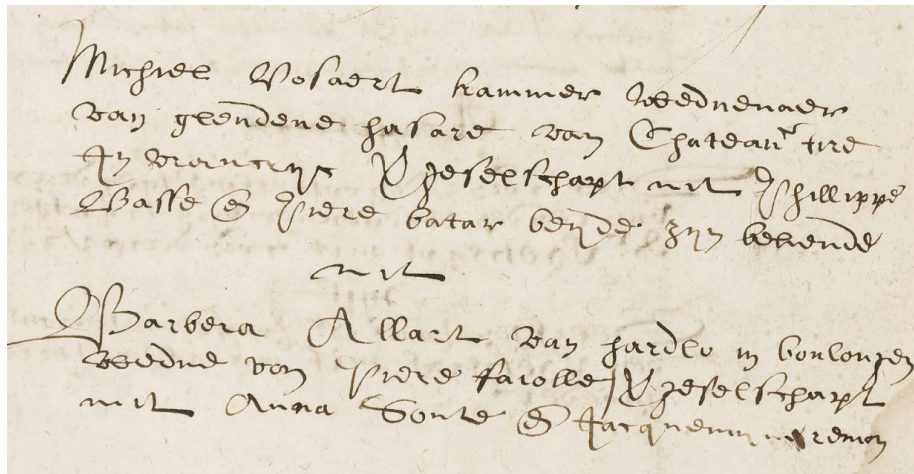 Michiel Vosaert kammer weduenaer
van glendene hasare van Chateau tire
In vrancryc v'geselschapt mit Phillippe
Wasse & Piere batar beyde zyn bekende
mit
Barbera Allart van hardlo in boulongen
wedue von Piere farolle v'geselschapt
mit Anna Sonte & Jacquemyn remon